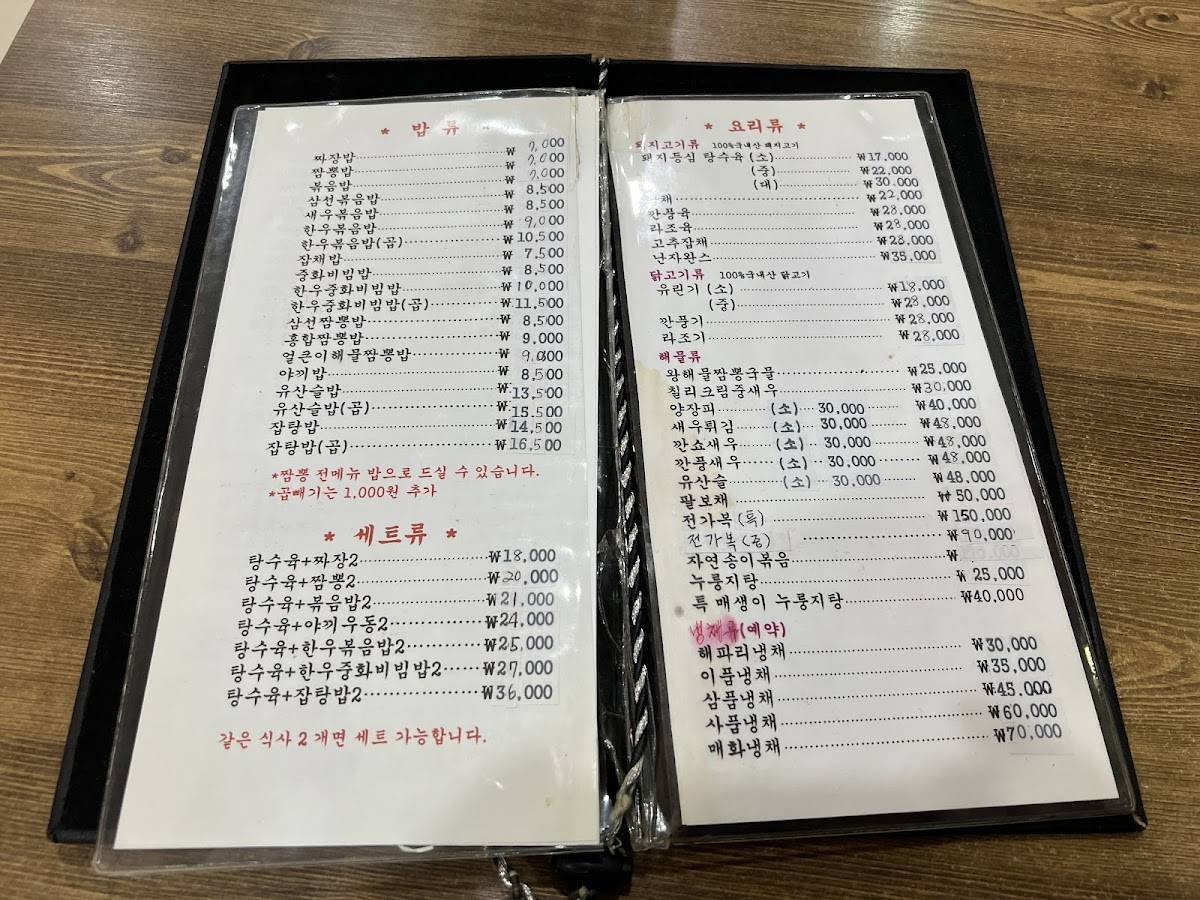 * 밥 류 *
짜장밥 ₩ 7,000
짬뽕밥 ₩ 7,000
볶음밥 ₩ 7,000
삼선볶음밥 ₩ 8,500
새우볶음밥 ₩ 8,500
한우볶음밥 ₩ 9,000
한우볶음밥(곱) ₩ 10,500
잡채밥 ₩ 7,500
중화비빔밥 ₩ 8,500
한우중화비빔밥 ₩ 10,000
한우중화비빔밥(곱) ₩ 11,500
삼선짬뽕밥 ₩ 8,500
홍합짬뽕밥 ₩ 9,000
얼큰이해물짬뽕밥 ₩ 9,000
야끼밥 ₩ 8,500
유산슬밥 ₩ 13,500
유산슬밥(곱) ₩ 15,500
잡탕밥 ₩ 14,500
잡탕밥(곱) ₩ 16,500
*짬뽕 전메뉴 밥으로 드실 수 있습니다.
*곱빼기는 1,000원 추가
* 세트류 *
탕수육+짜장2 ₩18,000
탕수육+짬뽕2 ₩20,000
탕수육+볶음밥2 ₩21,000
탕수육+야끼우동2 ₩24,000
탕수육+한우볶음밥2 ₩25,000
탕수육+한우중화비빔밥2 ₩27,000
탕수육+잡탕밥2 ₩36,000
같은 식사 2개면 세트 가능합니다.
* 요리류 *
돼지고기류 100%국내산 돼지고기
돼지등심 탕수육 (소) ₩17,000
(중) ₩22,000
(대) ₩30,000
채 ₩22,000
깐풍육 ₩28,000
라조육 ₩28,000
고추잡채 ₩28,000
난자완스 ₩35,000
닭고기류 100%국내산 닭고기
유린기 (소) ₩18,000
(중) ₩28,000
깐풍기 ₩28,000
라조기 ₩28,000
해물류
왕해물짬뽕국물 ₩25,000
칠리크림중새우 ₩30,000
양장피 (소) 30,000 ₩40,000
새우튀김 (소) 30,000 ₩48,000
깐쇼새우 (소) 30,000 ₩48,000
깐풍새우 (소) 30,000 ₩48,000
유산슬 (소) 30,000 ₩48,000
팔보채 ₩50,000
전가복(특) ₩150,000
전가복 ₩90,000
자연송이볶음 ₩
누룽지탕 ₩25,000
특 매생이 누룽지탕 ₩40,000
냉채류(예약)
해파리냉채 ₩30,000
이품냉채 ₩35,000
삼품냉채 ₩45,000
사품냉채 ₩60,000
매화냉채 ₩70,000